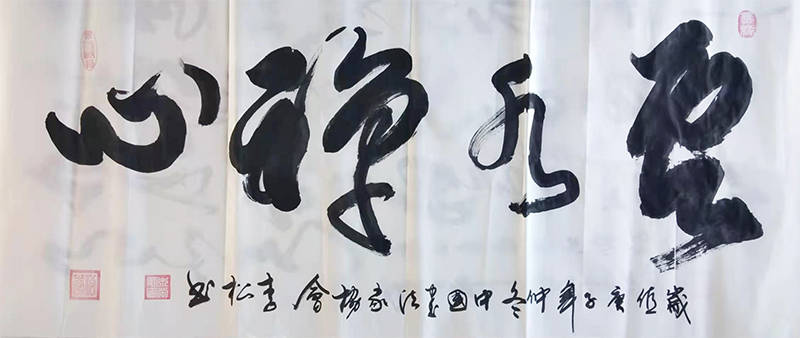 雲水禪心
歲值庚子年仲冬中國書法家協會李松書